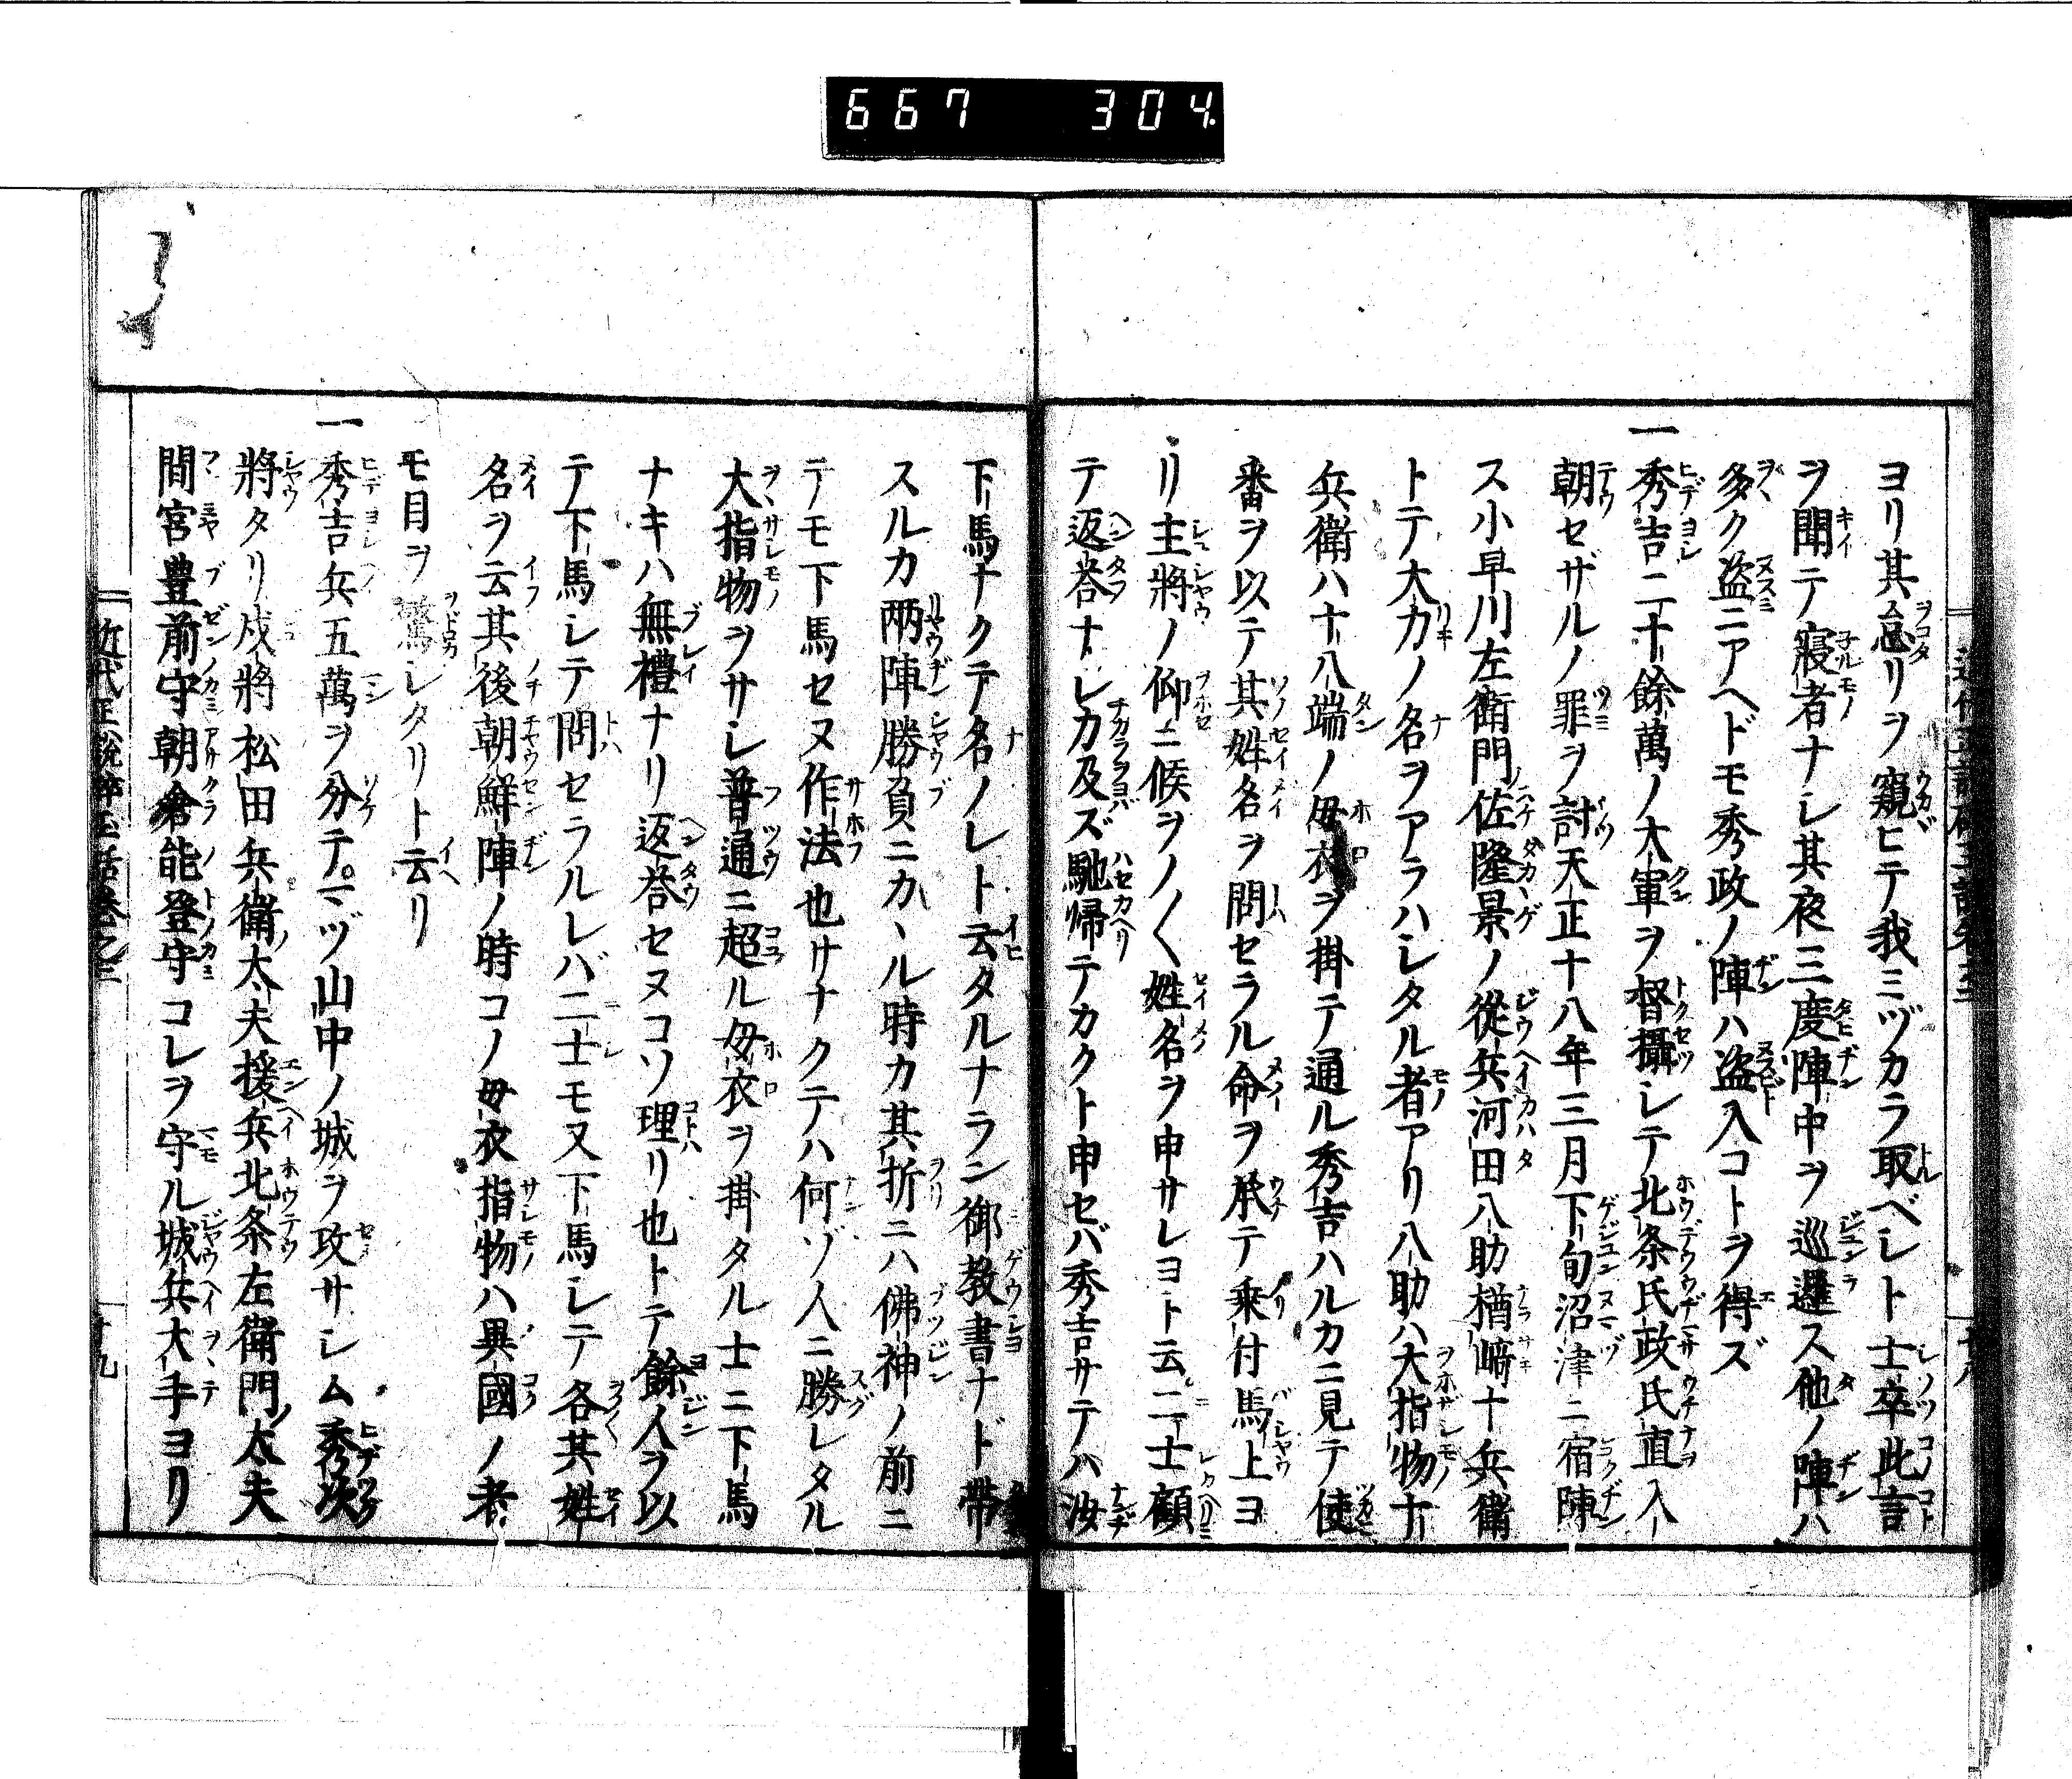 667 304
ヨリ其怠リヲ窺ヒテ我ミヅカラ取ベシト士卒此言
ヲ聞テ寢者ナシ其夜三度陣中ヲ巡邏ス他ノ陣ハ
多ク盗ニアヘドモ秀政ノ陣ハ盗入コトヲ得ズ
一秀吉二十餘萬ノ大軍ヲ督攝シテ北条氏政氏直入
朝セザルノ罪ヲ討天正十八年三月下旬沼津ニ宿陣
ス小早川左衛門佐隆景ノ從兵河田八助楢﨑十兵衛
トテ大力ノ名ヲアラハシタル者アリ八助ハ大指物十
兵衛ハ十八端ノ母衣ヲ掛テ通ル秀吉ハルカニ見テ使
番ヲ以テ其姓名ヲ問セラル命ヲ承テ乗付馬上ヨ
リ主將ノ仰ニ候ヲノ〱姓名ヲ申サレヨト云二士顧
テ返荅ナシ力及ズ馳帰テカクト申セバ秀吉サテハ汝
下馬ナクテ名ノレト云タルナラン御教書ナド帶
スルカ両陣勝負ニカヽル時カ其折ニハ佛神ノ前ニ
テモ下馬セヌ作法也サナクテハ何ゾ人ニ勝レタル
大指物ヲサシ普通ニ超ル母衣ヲ掛タル士ニ下馬
ナキハ無禮ナリ返荅セヌコソ理リ也トテ餘人ヲ以
テ下馬シテ問セラルレバ二士モ又下馬シテ各其姓
名ヲ云其後朝鮮陣ノ時コノ母衣指物ハ異國ノ者
モ目ヲ驚シタリト云リ
一秀吉兵五萬ヲ分テ先ヅ山中ノ城ヲ攻サシム秀次
將タリ戍將松田兵衛太夫援兵北条左衛門太夫
間宮豊前守朝倉能登守コレヲ守ル城兵大手ヨリ
近代正説碎玉話巻之三
十九